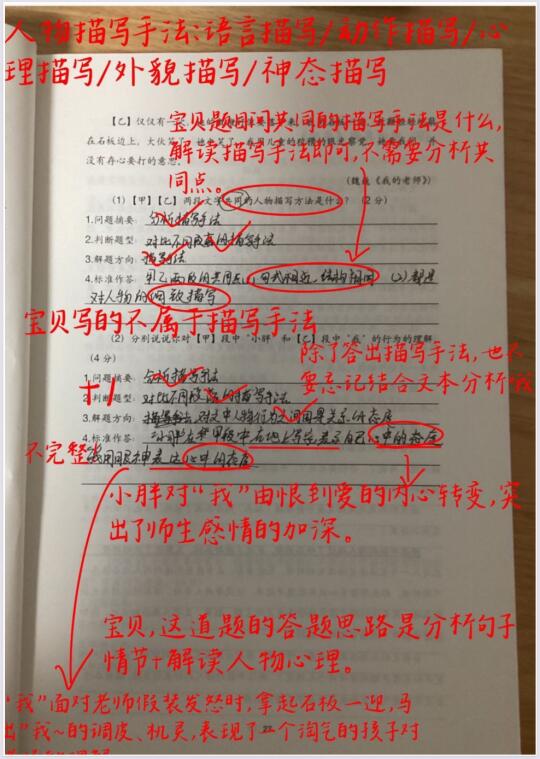 人物描写手法:语言描写/动作描写/心
理描写/外貌描写/神态描写
【乙】仅仅有一
宝贝题目问共同的描写手法是什么,
在石板边上,大伙笑了
解读描写手法即可,不需要分析共
没有存心要打的意思。
同点。
(魏巍《我的老师》)
(1)【甲】【乙】两段文字共同的人物描写方法是什么?(2分)
1.问题摘要: 分析描写手法
2.判断题型: 对比不同段落的描写手法
3.解题方向: 描写手法
4.标准作答: 甲乙两段的共同点:(1)句式相近,结构相同 (2)都是
对人物的细致描写
宝贝写的不属于描写手法
(2)分别说说你对【甲】段中“小胖”和【乙】段中“我”的行为的理解
(4分)
除了答出描写手法,也不
1.问题摘要: 分析描写手法
要忘记结合文本分析哦
+1
2.判断题型: 对比不同段落的描写手法
3.解题方向:
4.标准作答: 小胖在甲段中在地上写
不完整
我用眼神表达心中的态度
小胖对“我”由恨到爱的内心转变,突
出了师生感情的加深。
宝贝,这道题的答题思路是分析句子
情节+解读人物心理。
“我”面对老师假装发怒时,拿起石板一迎,
出“我~的调皮、机灵,表现了一个淘气的孩子对